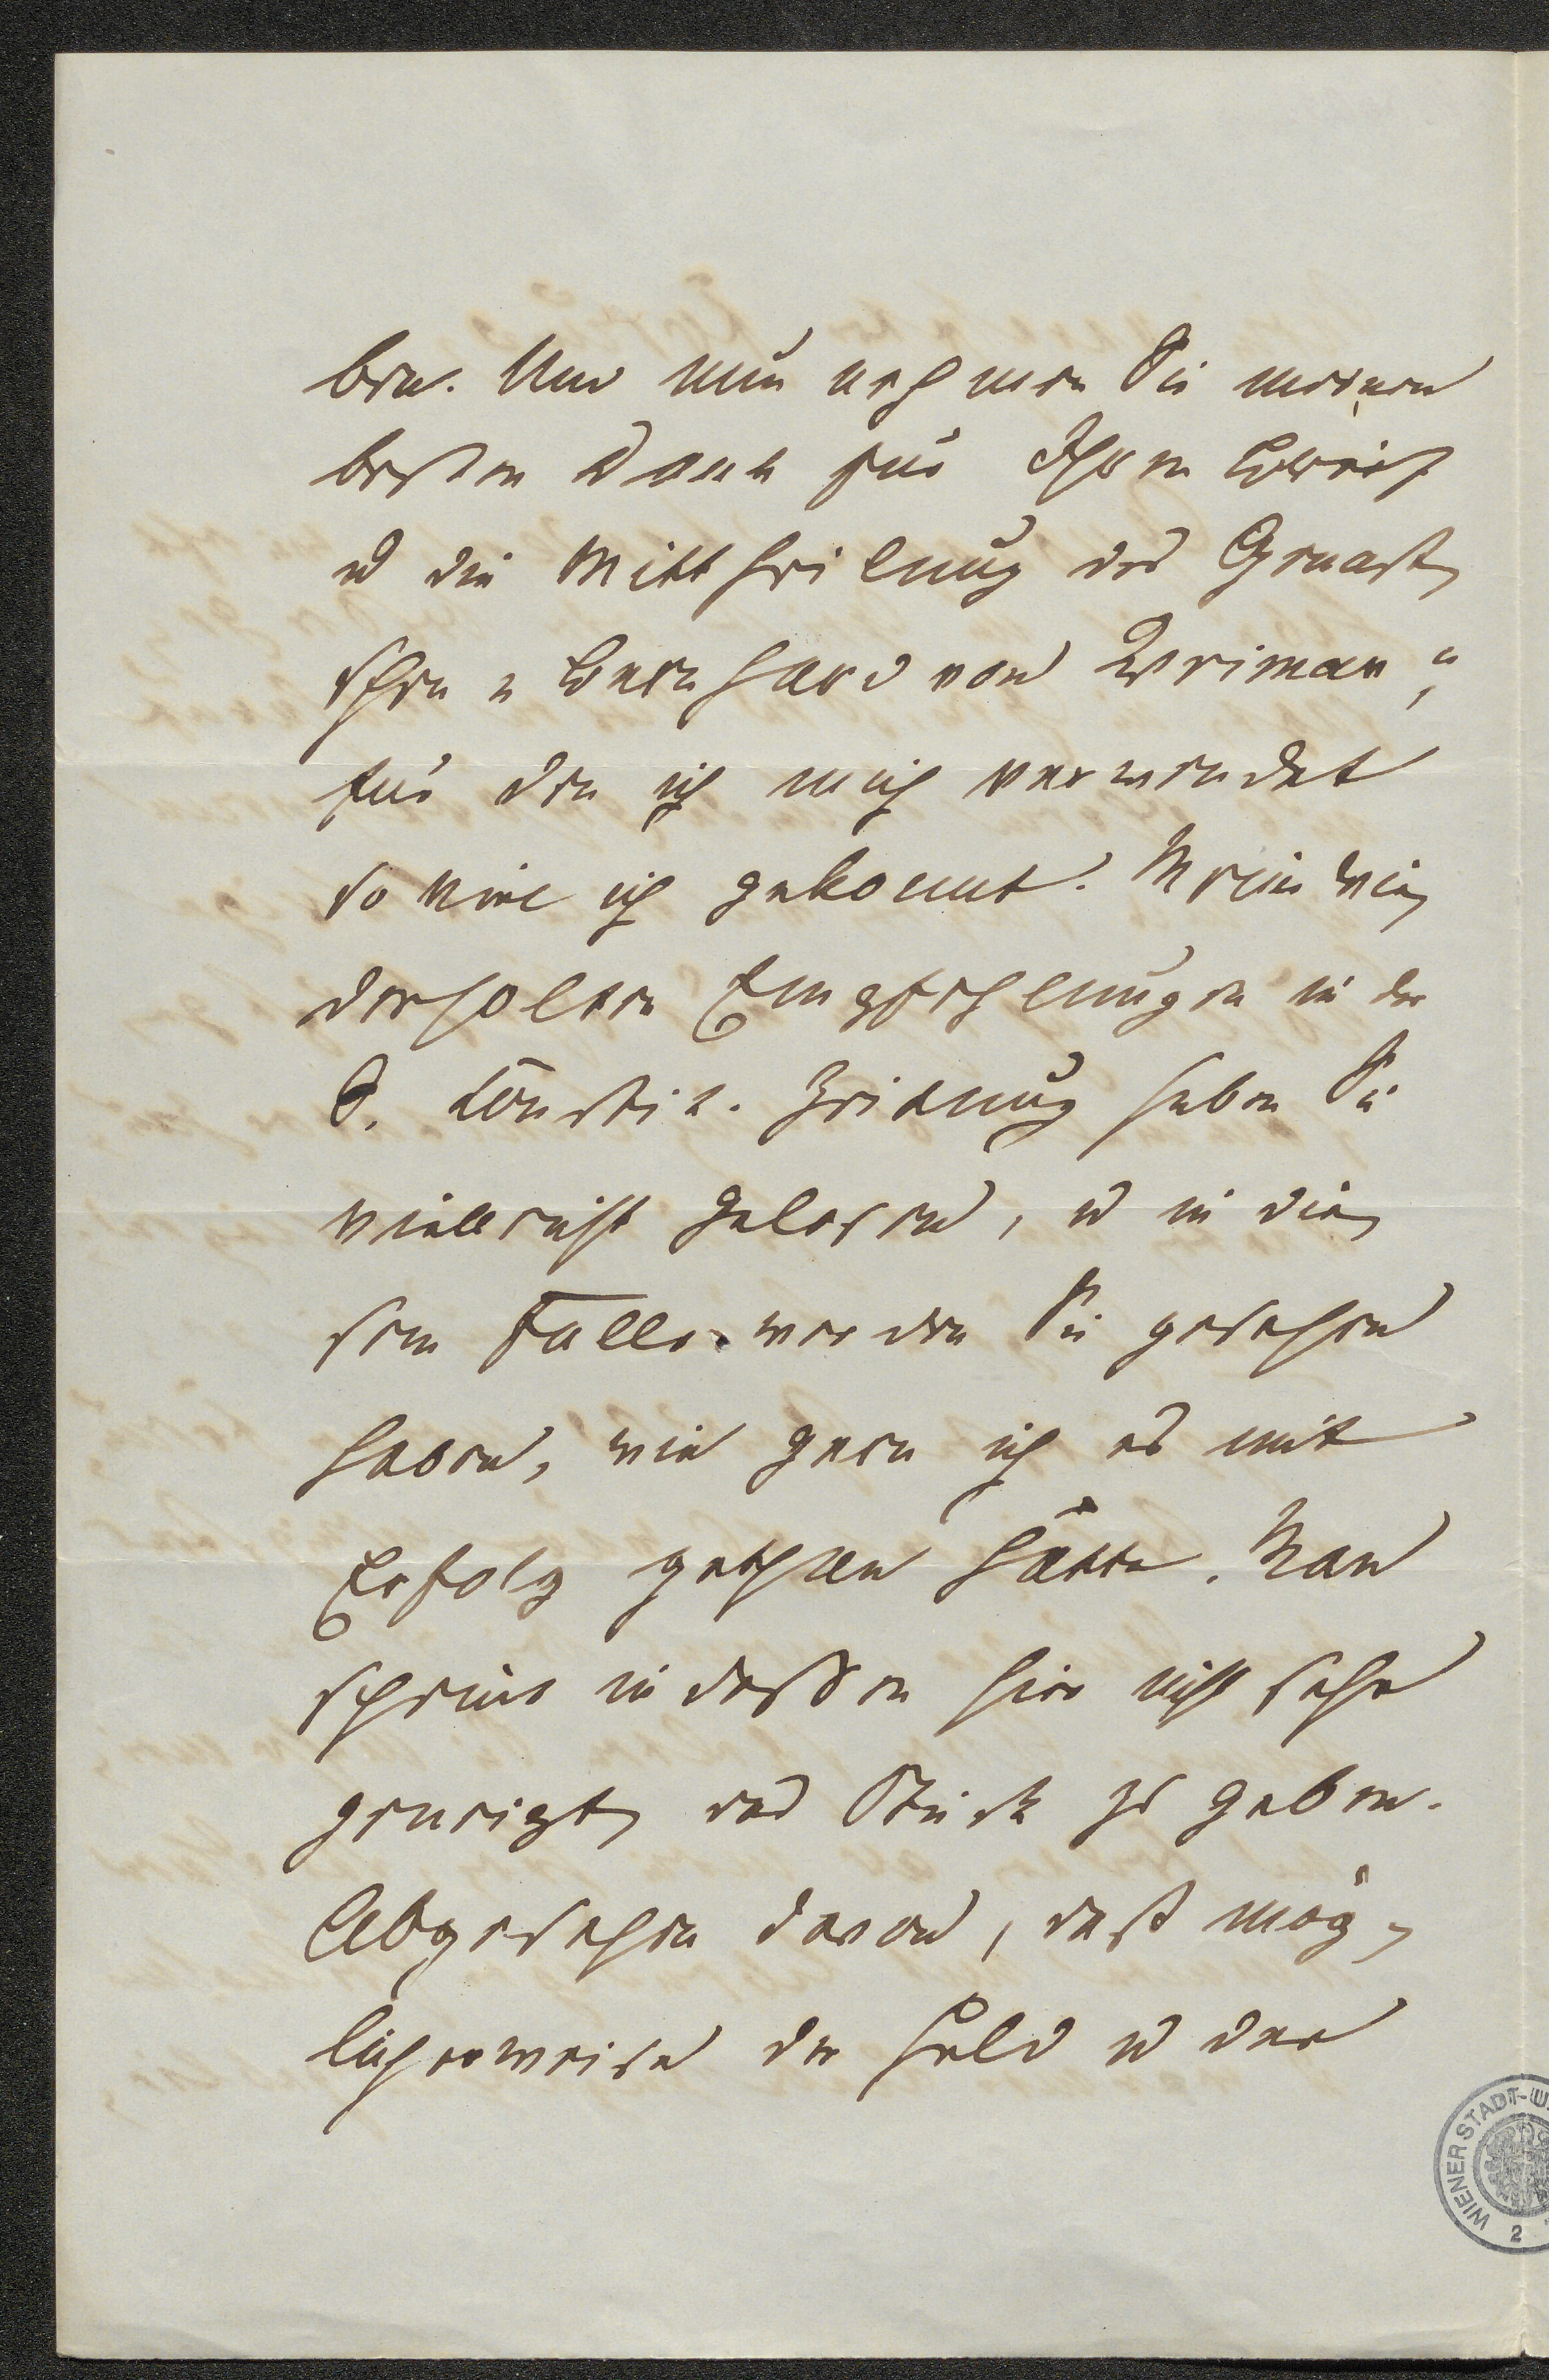 ben. Und nun nehmen Sie meinen
besten Dank für Ihren Brief
u die Mittheilung des Genast,
schen „Bernhard von Weimar“,
für den ich mich verwendet
so viel ich gekonnt. Meine wie,
derholten Empfehlungen in der
D. Constit. Zeitung haben Sie
vielleicht gelesen, u in die,
sem Falle werden Sie gesehen
haben, wie gern ich es mit
Erfolg gethan hätte. Man
scheint indessen hier nicht sehr
geneigt, das Stück zu geben.
Abgesehen davon, daß mög,
licherweise der Held u der
WIENER STADT-
2